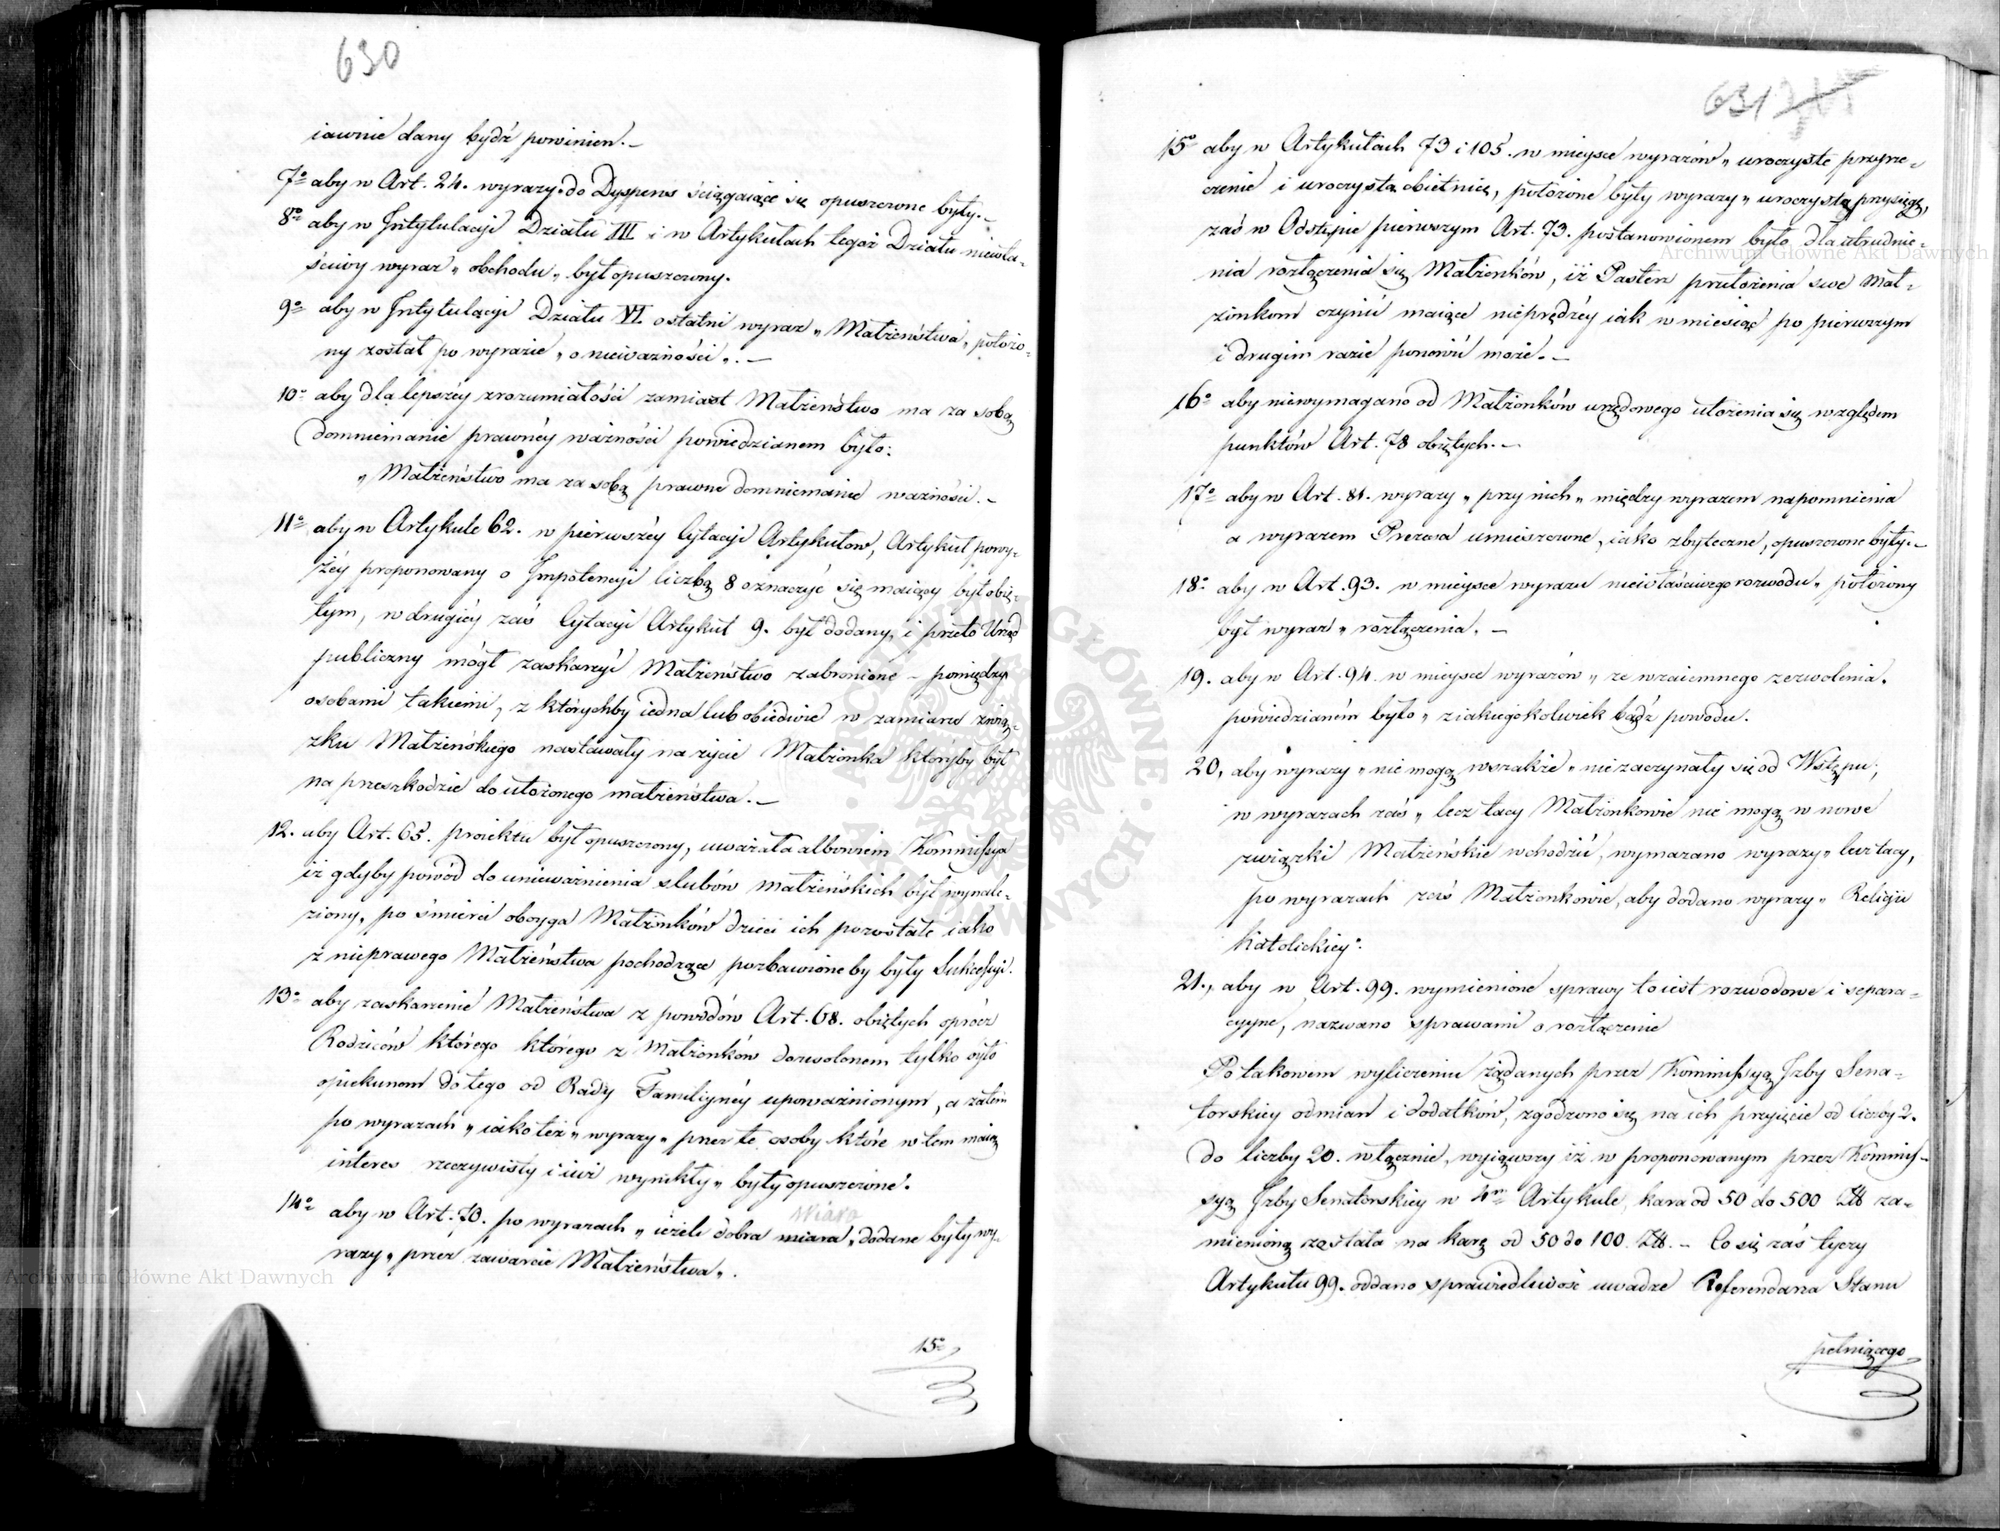 630
iawnie dany bydź powinien. –
7º aby w Art. 24. wyrazy do Dyspens ściągaiące się opuszczone były. –
8º aby w Intytulacyi Działu III i w Artykułach tegoż Działu niewła-
ściwy wyraz „ obchodu „ był opuszczony.
9º aby w Intytulacyi Działu VI ostatni wyraz „ Małżeństwa „ położo-
ny został po wyrazie „ o nieważności „. –
10º aby dla lepszéy zrozumiałości zamiast Małżeństwo ma za sobą
domniemanie prawnéy ważności powiedzianem było:
„ Małżeństwo ma za sobą prawne domniemanie ważności. –
11º aby w Artykule 62. w pierwszéy Cytacyi Artykułów, Artykuł powy-
żéy proponowany o Impotencyi liczbą 8 oznaczyć się maiący był obię-
tym, w drugiéy zaś Cytacyi Artykuł 9. był dodany, i przeto Urząd
publiczny mógł zaskarżyć Małżeństwo zabronione – pomiędzy
osobami takiemi, z którychby iedna lub obiedwie w zamiarze związ-
zku Małżeńskiego nastawały na życie Małżonka któryby był
na przeszkodzie do ułożonego małżeństwa. –
12. aby Art. 65. proiektu był opuszczony, uważała albowiem Kommissya
iż gdyby powód do unieważnienia ślubów małżeńskich był wynale-
ziony, po śmierci oboyga Małżonków dzieci ich pozostałe iako
z nieprawego Małżeństwa pochodzące pozbawione by były Sukcessyi.
13º aby zaskarżenie Małżeństwa z powodów Art. 68. obiętych oprócz
Rodziców którego którego z Małżonków dozwolonem tylko było
opiekunom do tego od Rady Familiynéy upoważnionym, a zatém
po wyrazach „ iako też „ wyrazy „ przez te osoby które w tem maią
interes rzeczywisty i iuż wynikły „ były opuszczone.
Wiara
14º aby w Art. 70. po wyrazach „ ieżeli dobra miara „ dodane były wy-
razy „ przez zawarcie Małżeństwa „.
15º
631
15º aby w Artykułach 73 i 105. w mieysce wyrazów „ uroczyste przyrze-
czenie i uroczystą obietnicę, położone były wyrazy „ uroczystą przysięgę,
zaś w Odstępie pierwszym Art. 73. postanowionem było, dla utrudnie-
nia rozłączenia się Małżonków, iż Pasterz przełożenia swe Mał-
żonkom czynić maiące nieprędzéy iak w miesiąc po pierwszym
i drugim razie ponowić może. –
16º aby niewymagano od Małżonków urzędowego ułożenia się względem
punktów Art. 78 obiętych. –
17º aby w Art. 81. wyrazy „ przy nich „ między wyrazem napomnienia
a wyrazem Prezesa umieszczone, iako zbyteczne, opuszczone były. –
18º aby w Art. 93. w mieysce wyrazu niewłaściwego rozwodu „ położony
był wyraz „ rozłączenia. –
19. aby w Art. 94. w mieysce wyrazów „ ze wzaiemnego zezwolenia.
powiedzianém było „ z iakiegokolwiek bądź powodu.
20, aby wyrazy „ nie mogą wszakże „ nie zaczynały się od Wstępu,
w wyrazach zaś „ lecz tacy Małżonkowie nie mogą w nowe
związki Małżeńskie wchodzić, wymazano wyrazy „ lecz tacy,
po wyrazach zaś Małżonkowie, aby dodano wyrazy „ Religii
Katolickiey".
21., aby w Art. 99. wymienione sprawy to iest rozwodowe i separa-
cyyne, nazwano sprawami o rozłączenie
Po takowem wyliczeniu żądanych przez Kommissyą Izby Sena-
torskiey odmian i dodatków, zgodzono się na ich przyięcie od liczby 2.
do liczby 20. włącznie, wyiąwszy iż w proponowanym przez Kommis-
syą Izby Senatorskiey w 4m Artykule, kara od 50 do 500 Zł. za-
mienioną została na karę od 50 do 100. Zł. – Co się zaś tyczy
Artykułu 99. oddano sprawiedliwość uwadze Referendarza Stanu
pełniącego
Archiwum Główne Akt Dawnych
Archiwum Główne Akt Dawnych
ARCHIWUM GŁÓWNE AKT DAWNYCH